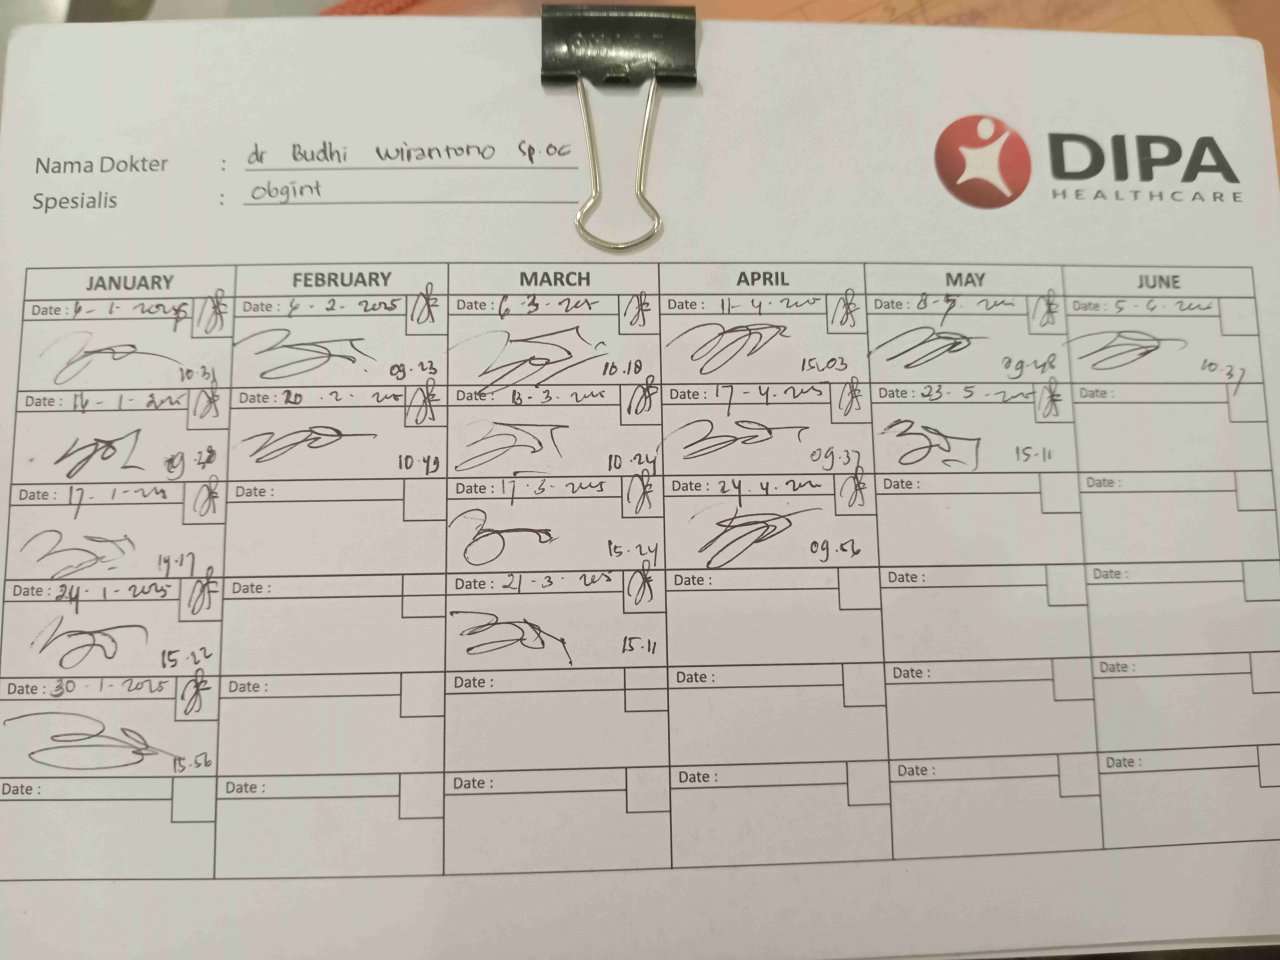 Nama Dokter : dr Budhi Wirantono Sp.OG
Spesialis : Obgint
DIPA
HEALTHCARE
JANUARY FEBRUARY MARCH APRIL MAY JUNE
Date : -1-2025 Date : 6-2-2025 Date : 6-3-2025 Date : 11-4-2025 Date : 8-5-2025 Date : 5-6-2025
10.31 09.23 10.18 15.03 09.48 10.37
Date : 16-1-2025 Date : 20.2.2025 Date : 13-3-2025 Date : 17-4-2025 Date : 23-5-2025 Date :
09.28 10.49 10.24 09.37 15.11
Date : 17-1-2025 Date : Date : 17-3-2025 Date : 24.4.2025 Date : Date :
14.17 15.24 09.56
Date : 24-1-2025 Date : Date : 21-3-2025 Date : Date : Date :
15.22 15.11
Date : 30-1-2025 Date : Date : Date : Date : Date :
15.56
Date : Date : Date : Date : Date : Date :